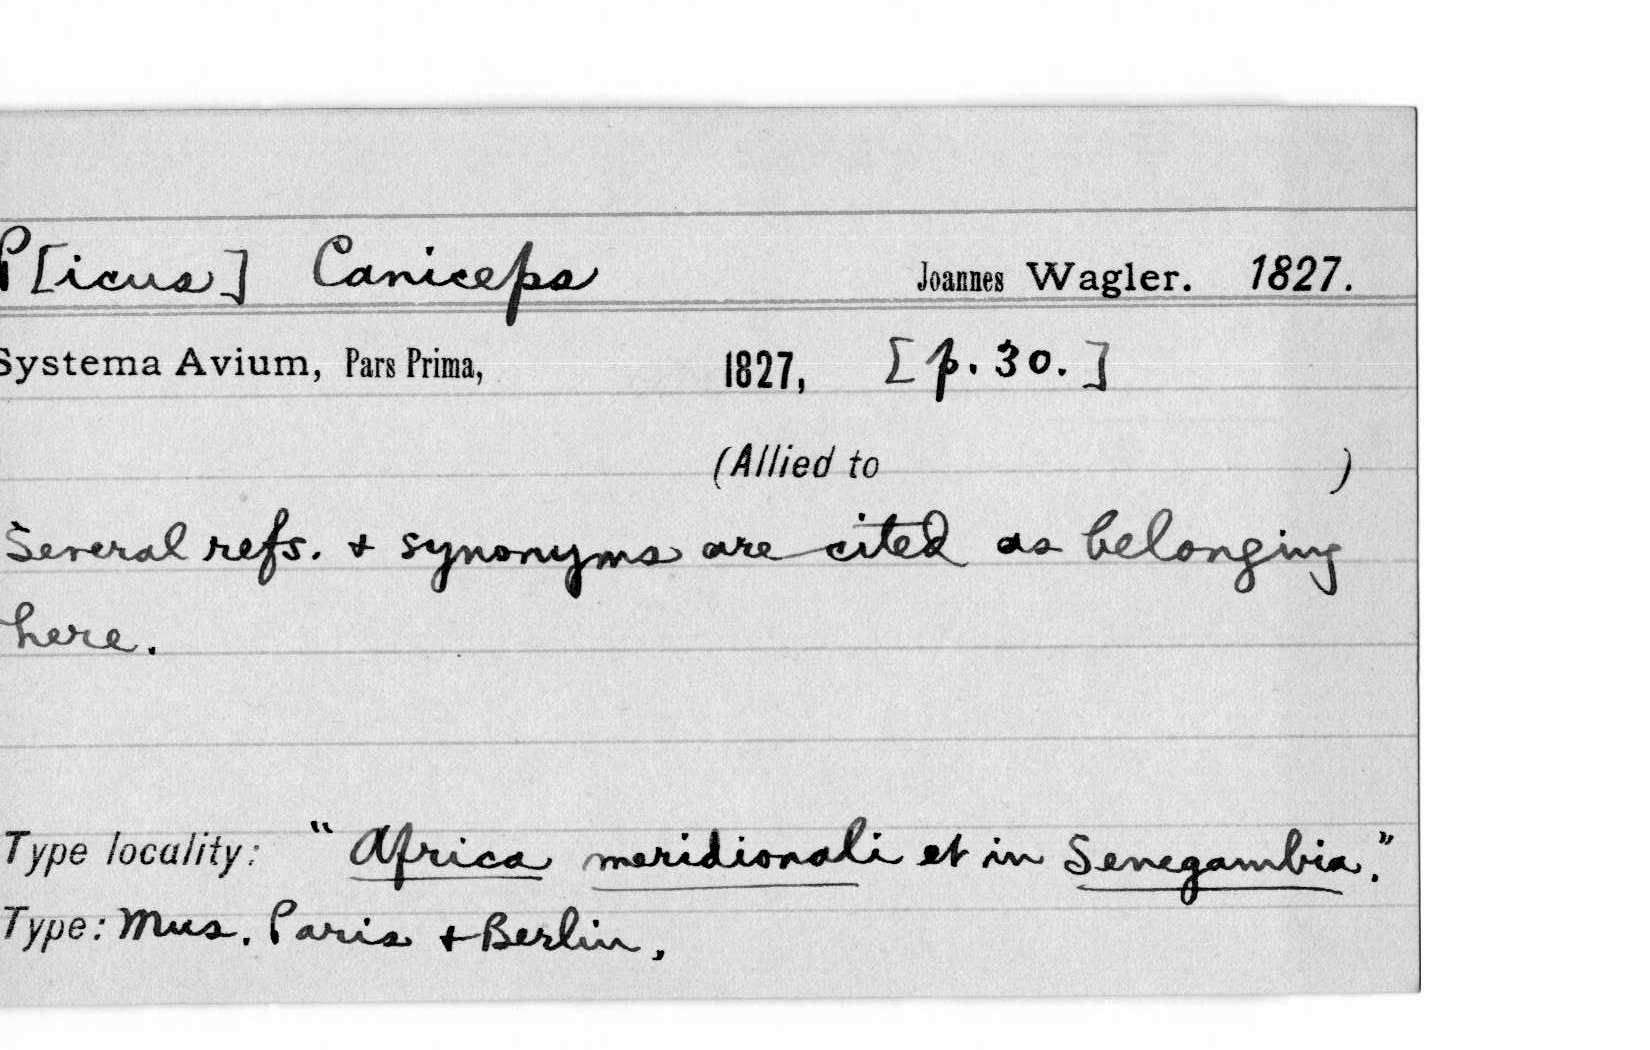 P[icus] Caniceps Joannes Wagler. 1827.
Systema Avium, Pars Prima, 1827, [p. 30.]
(Allied to )
Several refs. + synonyms are cited as belonging
here.
Type locality: "Africa meridionali et in Senegambia."
Type: Mus. Paris + Berlin.